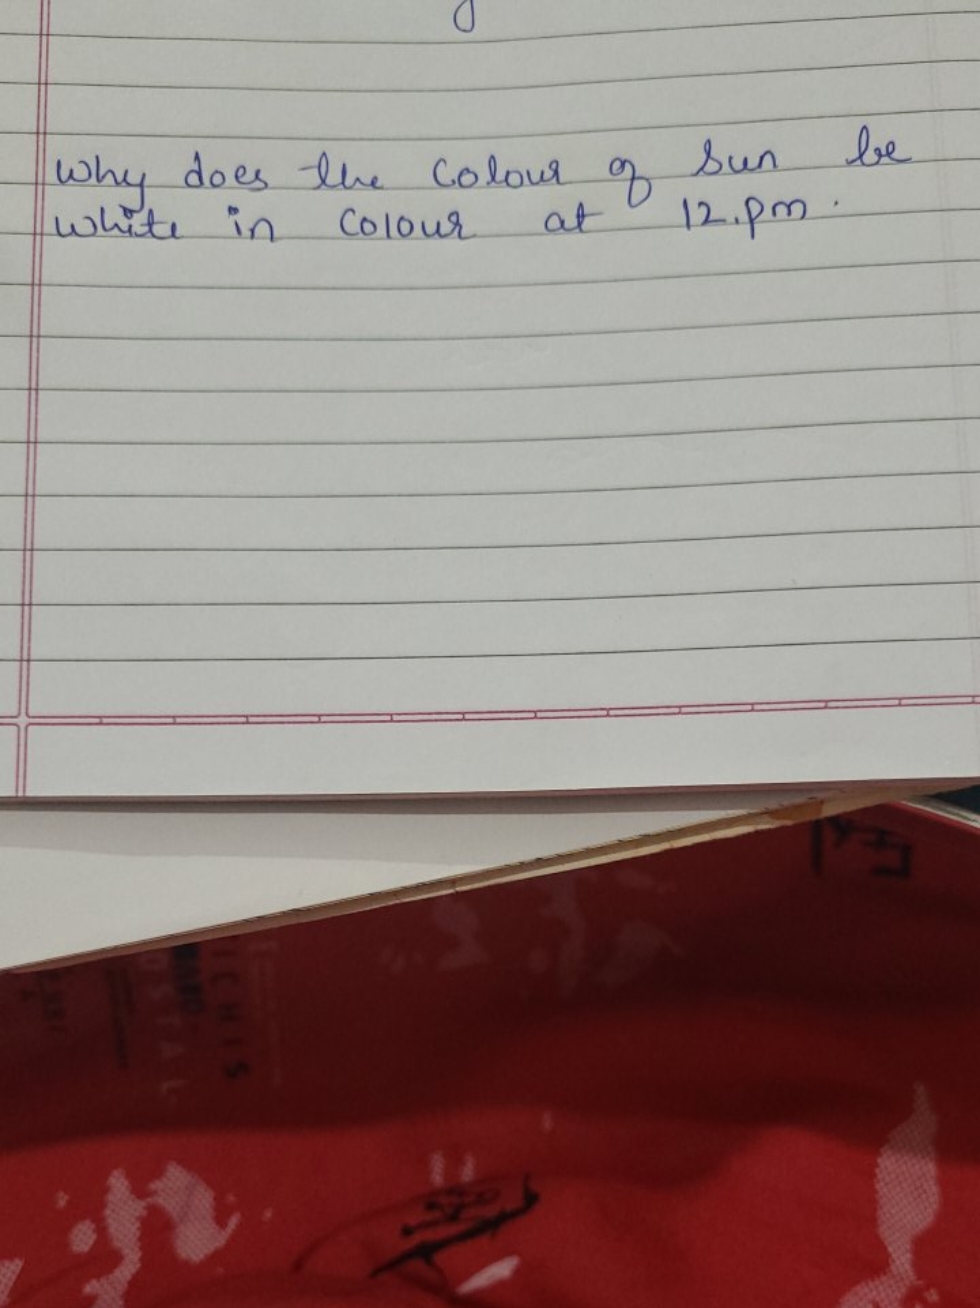 Why does the Colour of Sun be
white in Colour at 12.pm.